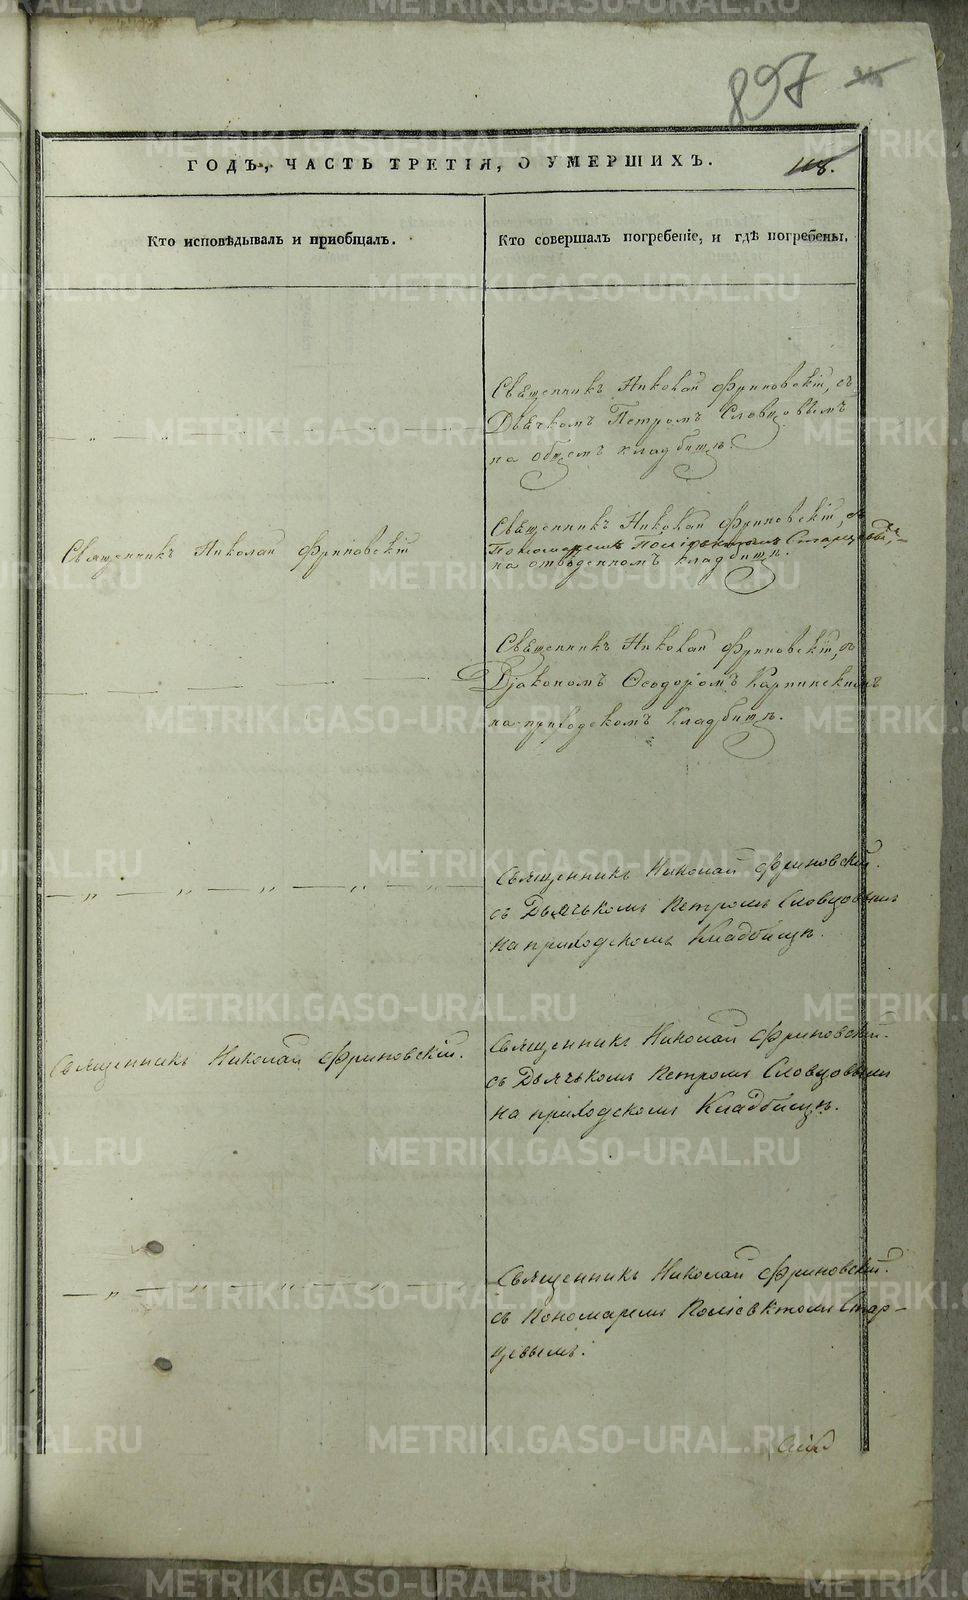 897
ГОДЪ, ЧАСТЬ ТРЕТІЯ, О УМЕРШИХЪ.
118.
Кто исповѣдывалъ и пріобщалъ.
Кто совершалъ погребеніе, и гдѣ погребены.
Священникъ Николай Фриновскій, съ
Дьячкомъ Петромъ Словцовымъ
на общемъ кладбищѣ.
Священникъ Николай Фриновскій
Священникъ Николай Фриновскій, съ
Пономаремъ Поліевктомъ Старцовымъ,
на отведенномъ кладбищѣ.
Священникъ Николай Фриновскій, съ
Діакономъ Ѳеодоромъ Карпинскимъ
на приходскомъ Кладбищѣ.
Священникъ Николай Фриновскій.
съ Дьячькомъ Петромъ Словцовымъ
на приходскомъ Кладбищѣ.
Священникъ Николай Фриновскій.
Священникъ Николай Фриновскій.
съ Дьячькомъ Петромъ Словцовымъ
на приходскомъ Кладбищѣ.
Священникъ Николай Фриновскій.
съ Пономаремъ Поліевктомъ Стар-
цевымъ.
METRIKI.GASO-URAL.RU